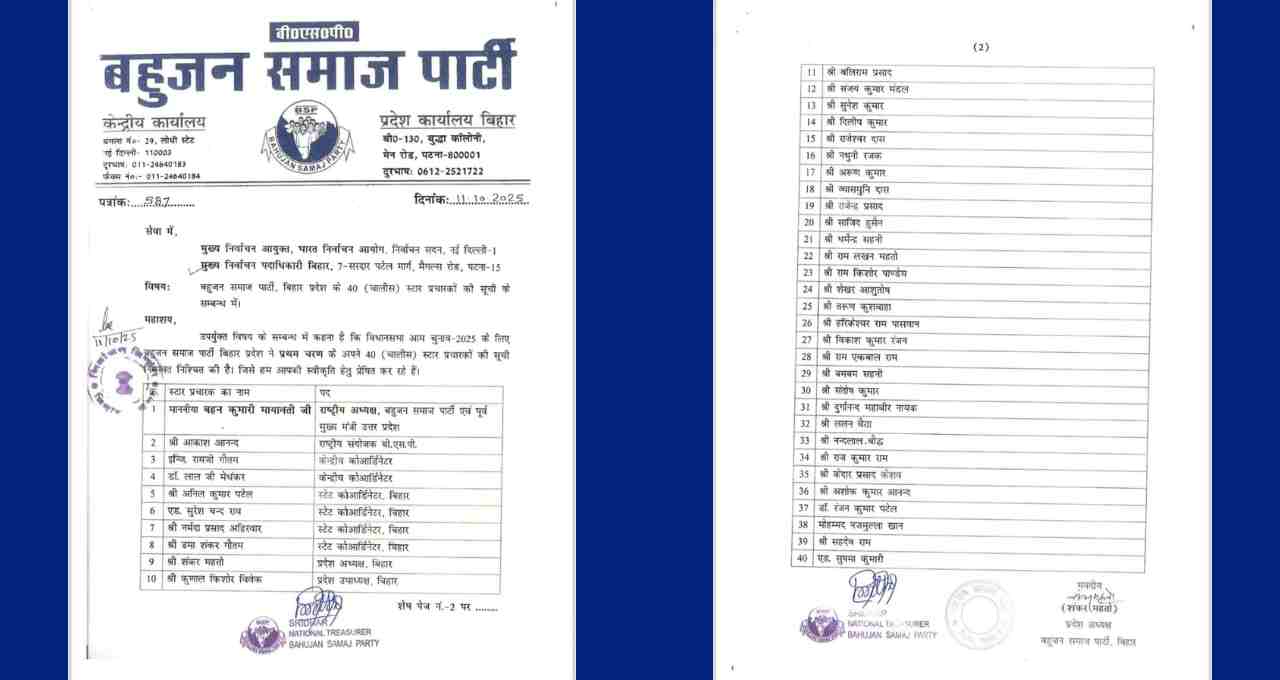 बी०एस०पी०
बहुजन समाज पार्टी
केन्द्रीय कार्यालय
बंगला नं०- 29, लोधी स्टेट
नई दिल्ली- 110003
दूरभाष: 011-24640183
फैक्स नं०:- 011-24640184
BSP
BAHUJAN SAMAJ PARTY
प्रदेश कार्यालय बिहार
बी0-130, बुद्धा कॉलोनी,
मेन रोड, पटना-800001
दूरभाष: 0612-2521722
पत्रांक:....587..........
दिनांक:..11.10.2025..
सेवा में,
मुख्य निर्वाचन आयुक्त, भारत निर्वाचन आयोग, निर्वाचन सदन, नई दिल्ली-1
मुख्य निर्वाचन पदाधिकारी बिहार, 7-सरदार पटेल मार्ग, मैंगल्स रोड, पटना-15
विषय: बहुजन समाज पार्टी, बिहार प्रदेश के 40 (चालीस) स्टार प्रचारकों की सूची के
सम्बन्ध में।
महाशय,
11/10/25
उपर्युक्त विषय के सम्बन्ध में कहना है कि विधानसभा आम चुनाव-2025 के लिए
बहुजन समाज पार्टी बिहार प्रदेश ने प्रथम चरण के अपने 40 (चालीस) स्टार प्रचारकों की सूची
निश्चित की है। जिसे हम आपकी स्वीकृति हेतु प्रेषित कर रहे हैं।
क्र. स्टार प्रचारक का नाम पद
1 माननीया बहन कुमारी मायावती जी राष्ट्रीय अध्यक्ष, बहुजन समाज पार्टी एवं पूर्व
मुख्य मंत्री उत्तर प्रदेश
2 श्री आकाश आनन्द राष्ट्रीय संयोजक बी.एस.पी.
3 इन्जि. रामजी गौतम केन्द्रीय कोआर्डिनेटर
4 डॉ. लाल जी मेधंकर केन्द्रीय कोआर्डिनेटर
5 श्री अनिल कुमार पटेल स्टेट कोआर्डिनेटर, बिहार
6 एड. सुरेश चन्द राव स्टेट कोआर्डिनेटर, बिहार
7 श्री नर्मदा प्रसाद अहिरवार स्टेट कोआर्डिनेटर, बिहार
8 श्री उमा शंकर गौतम स्टेट कोआर्डिनेटर, बिहार
9 श्री शंकर महतो प्रदेश अध्यक्ष, बिहार
10 श्री कुणाल किशोर विवेक प्रदेश उपाध्यक्ष, बिहार
शेष पेज नं.-2 पर ........
SRIDHAR
NATIONAL TREASURER
BAHUJAN SAMAJ PARTY
(2)
11 श्री बलिराम प्रसाद
12 श्री संजय कुमार मंडल
13 श्री सुनेश कुमार
14 श्री दिलीप कुमार
15 श्री राजेश्वर दास
16 श्री नथुनी रजक
17 श्री अरूण कुमार
18 श्री व्यासमुनि दास
19 श्री राजेन्द्र प्रसाद
20 श्री साजिद हुसैन
21 श्री धर्मेन्द्र सहनी
22 श्री राम लखन महतो
23 श्री राम किशोर पाण्डेय
24 श्री शेखर आशुतोष
25 श्री तरूण कुशवाहा
26 श्री हरिकेश्वर राम पासवान
27 श्री विकाश कुमार रंजन
28 श्री राम एकबाल राम
29 श्री बमबम सहनी
30 श्री संतोष कुमार
31 श्री दुर्गानन्द महाबीर नायक
32 श्री ललन बैठा
33 श्री नन्दलाल बौद्ध
34 श्री राज कुमार राम
35 श्री केदार प्रसाद केशव
36 श्री अशोक कुमार आनन्द
37 डॉ. रंजन कुमार पटेल
38 मोहम्मद नजमुल्ला खान
39 श्री सहदेव राम
40 एड. सुषमा कुमारी
SRIDHAR
NATIONAL TREASURER
BAHUJAN SAMAJ PARTY
भवदीय
(शंकर महतो)
प्रदेश अध्यक्ष
बहुजन समाज पार्टी, बिहार